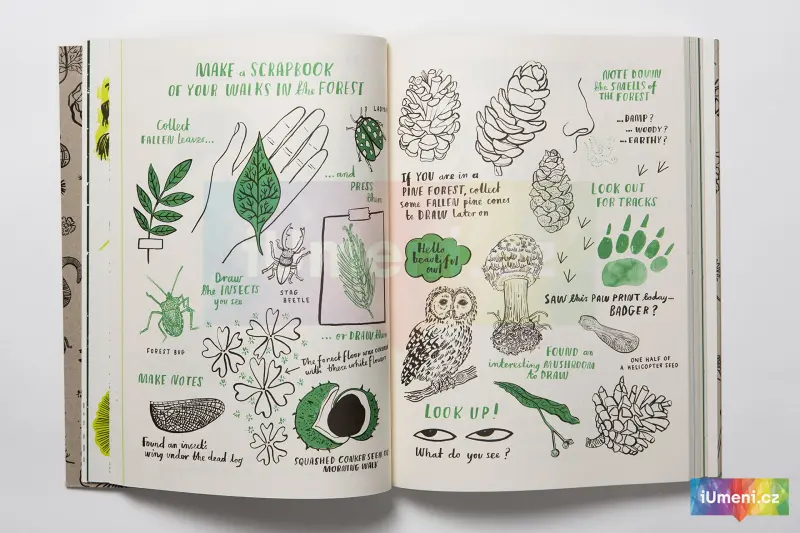 MAKE a SCRAPBOOK
OF YOUR WALKS IN the FOREST
Collect
FALLEN leaves...
...and
PRESS
them
Draw
the INSECTS
you see
STAG
BEETLE
FOREST BUG
... or DRAW them
The forest floor was covered
with these white flowers
MAKE NOTES
Found an insect's
wing under the dead log
SQUASHED CONKER SEEN ON
MORNING WALK
NOTE DOWN
the SMELLS of
THE FOREST
... DAMP?
... WOODY?
... EARTHY?
IF YOU are in a
PINE FOREST, collect
some FALLEN pine cones
to DRAW later on
LOOK OUT
FOR TRACKS
Hello
beautiful
owl
SAW this PAW PRINT today—
BADGER?
FOUND an
interesting MUSHROOM
to DRAW
ONE HALF OF
A HELICOPTER SEED
LOOK UP!
What do you see?
iUmeni.cz
iUmeni.cz